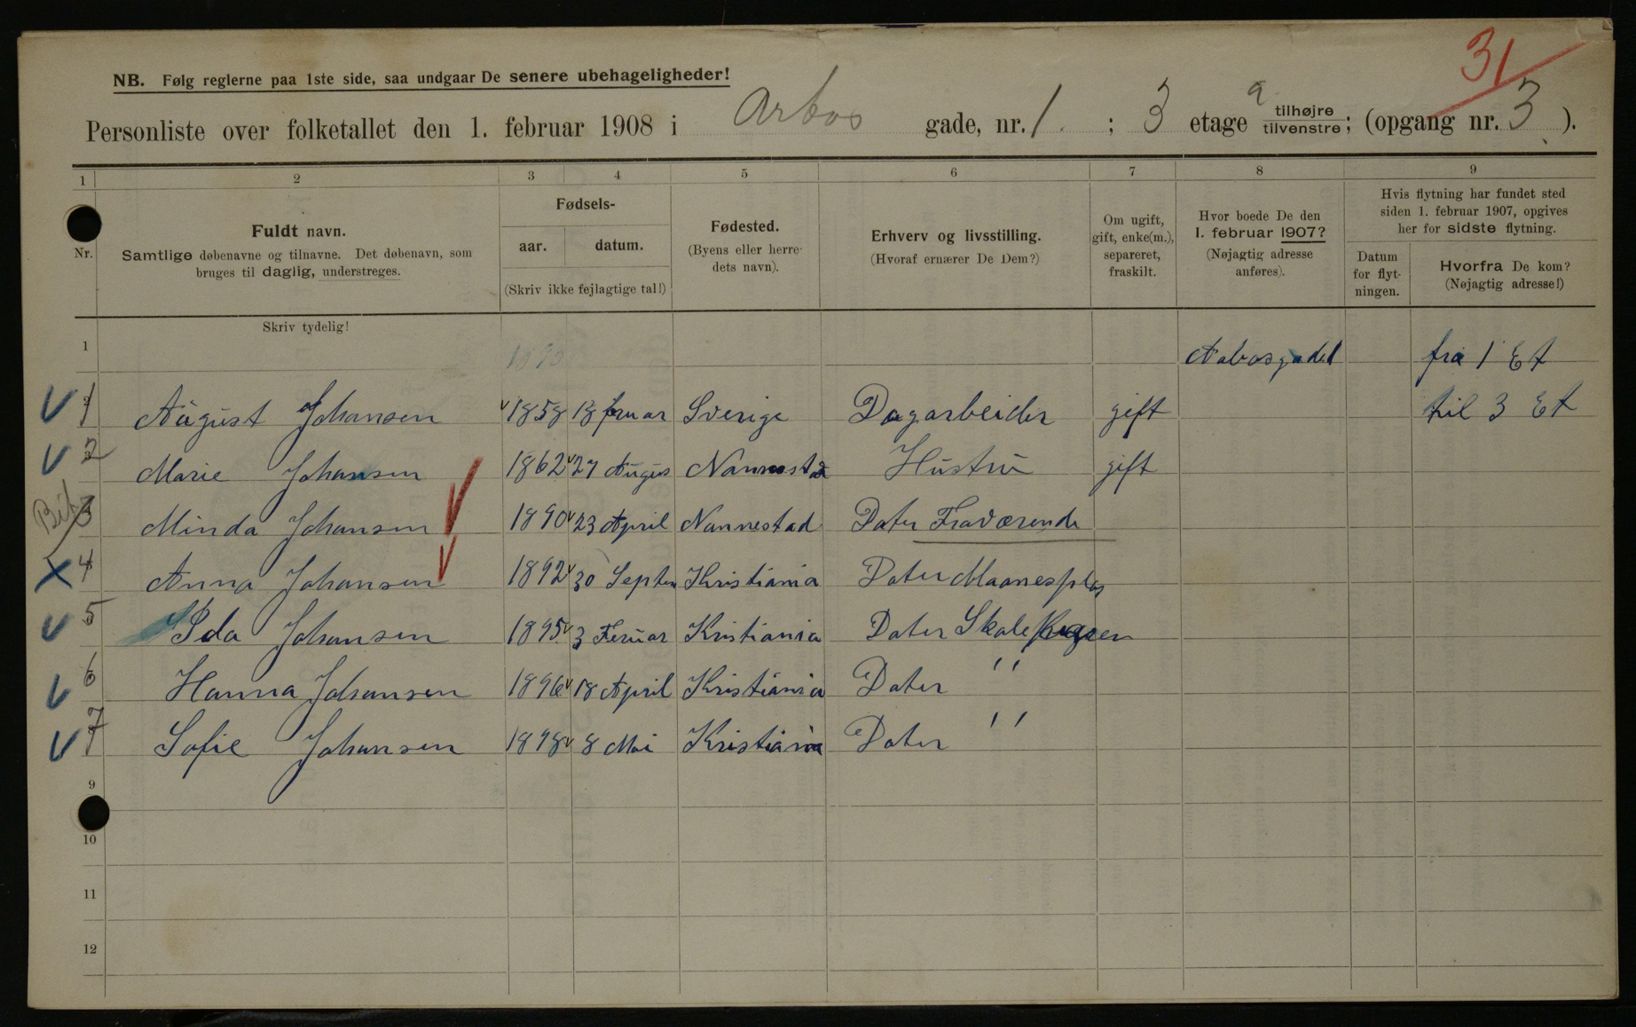 31
NB. Følg reglerne paa 1ste side, saa undgaar De senere ubehageligheder!
Personliste over folketallet den 1. februar 1908 i Arbos gade, nr. 1. ; 3 etage tilhøjre tilvenstre; (opgang nr. 3 ).
1 2 3 4 5 6 7 8 9
Nr.
Fuldt navn.
Samtlige døbenavne og tilnavne. Det døbenavn, som
bruges til daglig, understreges.
Fødsels-
aar. datum.
(Skriv ikke fejlagtige tal!)
Fødested.
(Byens eller herre-
dets navn).
Erhverv og livsstilling.
(Hvoraf ernærer De Dem?)
Om ugift,
gift, enke(m.),
separeret,
fraskilt.
Hvor boede De den
1. februar 1907?
(Nøjagtig adresse
anføres).
Hvis flytning har fundet sted
siden 1. februar 1907, opgives
her for sidste flytning.
Datum
for flyt-
ningen.
Hvorfra De kom?
(Nøjagtig adresse!)
Skriv tydelig!
1 fra 1 Et
1 August Johansen 1858 Sverige Dagarbeider gift til 3 Et
2 Marie Johansen 1862 27 Augus Nannestad Hustru gift
3 Minda Johansen 1890 23 April Nannestad Dater Fraværende
4 Anna Johansen 1892 30 Septem Kristiania Dater
5 Ida Johansen 1895 3 Feruar Kristiania Dater
6 Hanna Johansen 1896 18 April Kristiania Dater ''
7 Sofie Johansen 1898 8 Mai Kristiania Dater ''
9
10
11
12